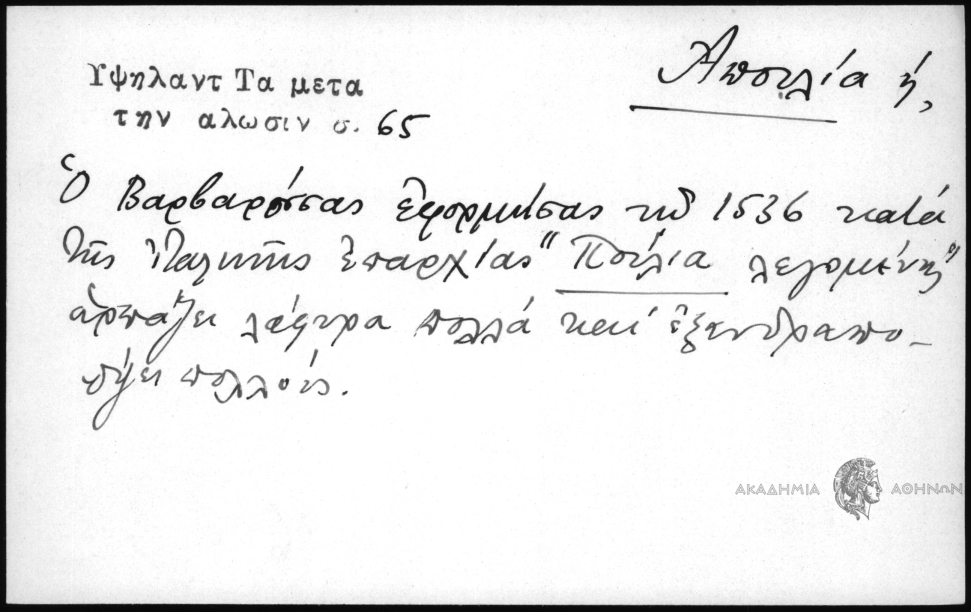 Ἀπουλία ἡ,
Υψηλαντ Τα μετα
την αλωσιν σ. 65
Ὁ Βαρβαρόσσας ἐφορμήσας τῷ 1536 κατά
τῆς ἰταλικῆς ἐπαρχίας "Πούλια λεγομένης"
ἁρπάζει λάφυρα πολλά καί ἐξανδραπο-
δίζει πολλούς.
ΑΚΑΔΗΜΙΑ ΑΘΗΝΩΝ